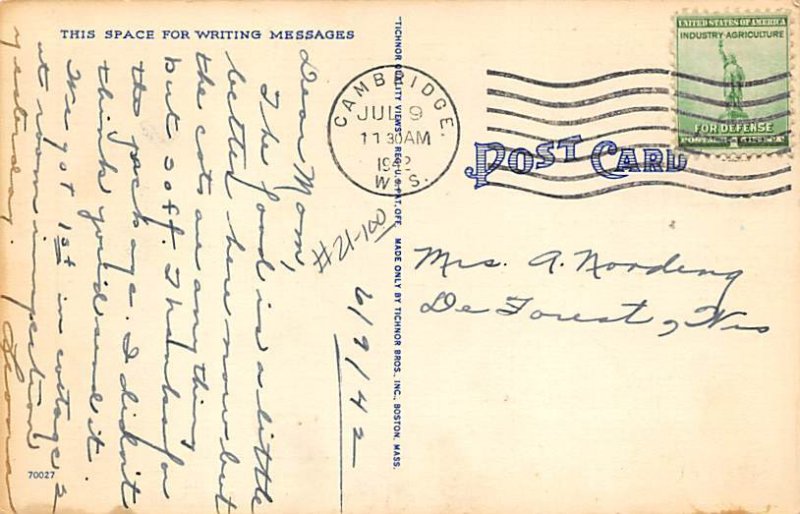 THIS SPACE FOR WRITING MESSAGES
Dear Mom,
The food is a little
better here now but
the cots are anything
but soft. Thanks for
the package. I didn't
think you'd send it.
We got 1st in cottage &
at room inspection
yesterday.
#21-100
6/9/42
70027
"TICHNOR QUALITY VIEWS" REG. U.S. PAT. OFF. MADE ONLY BY TICHNOR BROS., INC., BOSTON, MASS.
CAMBRIDGE,
JUL 9
11 30 AM
1942
WIS.
UNITED STATES OF AMERICA
INDUSTRY·AGRICULTURE
FOR DEFENSE
POST CARD
Mrs. A. Nordeng
De Forest, Wis